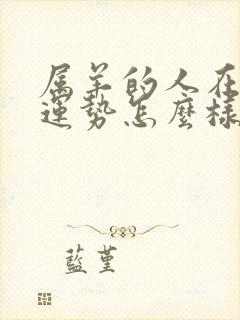 属羊的人在
運勢怎麼樣
藍堇